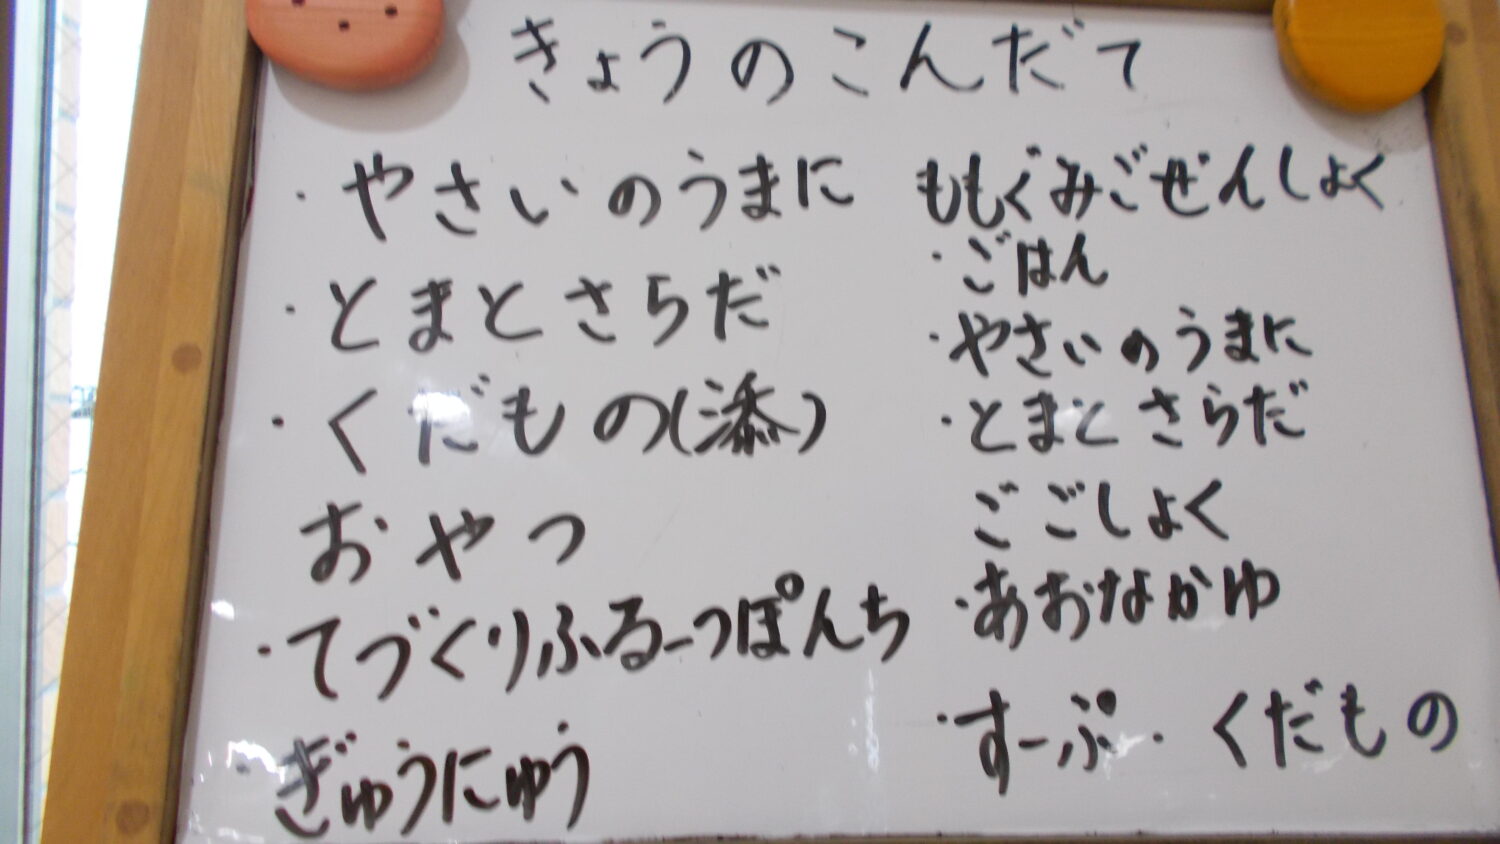 きょうのこんだて
・やさいのうまに
・とまとさらだ
・くだもの(添)
おやつ
・てづくりふるーつぽんち
・ぎゅうにゅう
ももぐみごぜんしょく
・ごはん
・やさいのうまに
・とまとさらだ
ごごしょく
・あおなかゆ
・すーぷ・くだもの